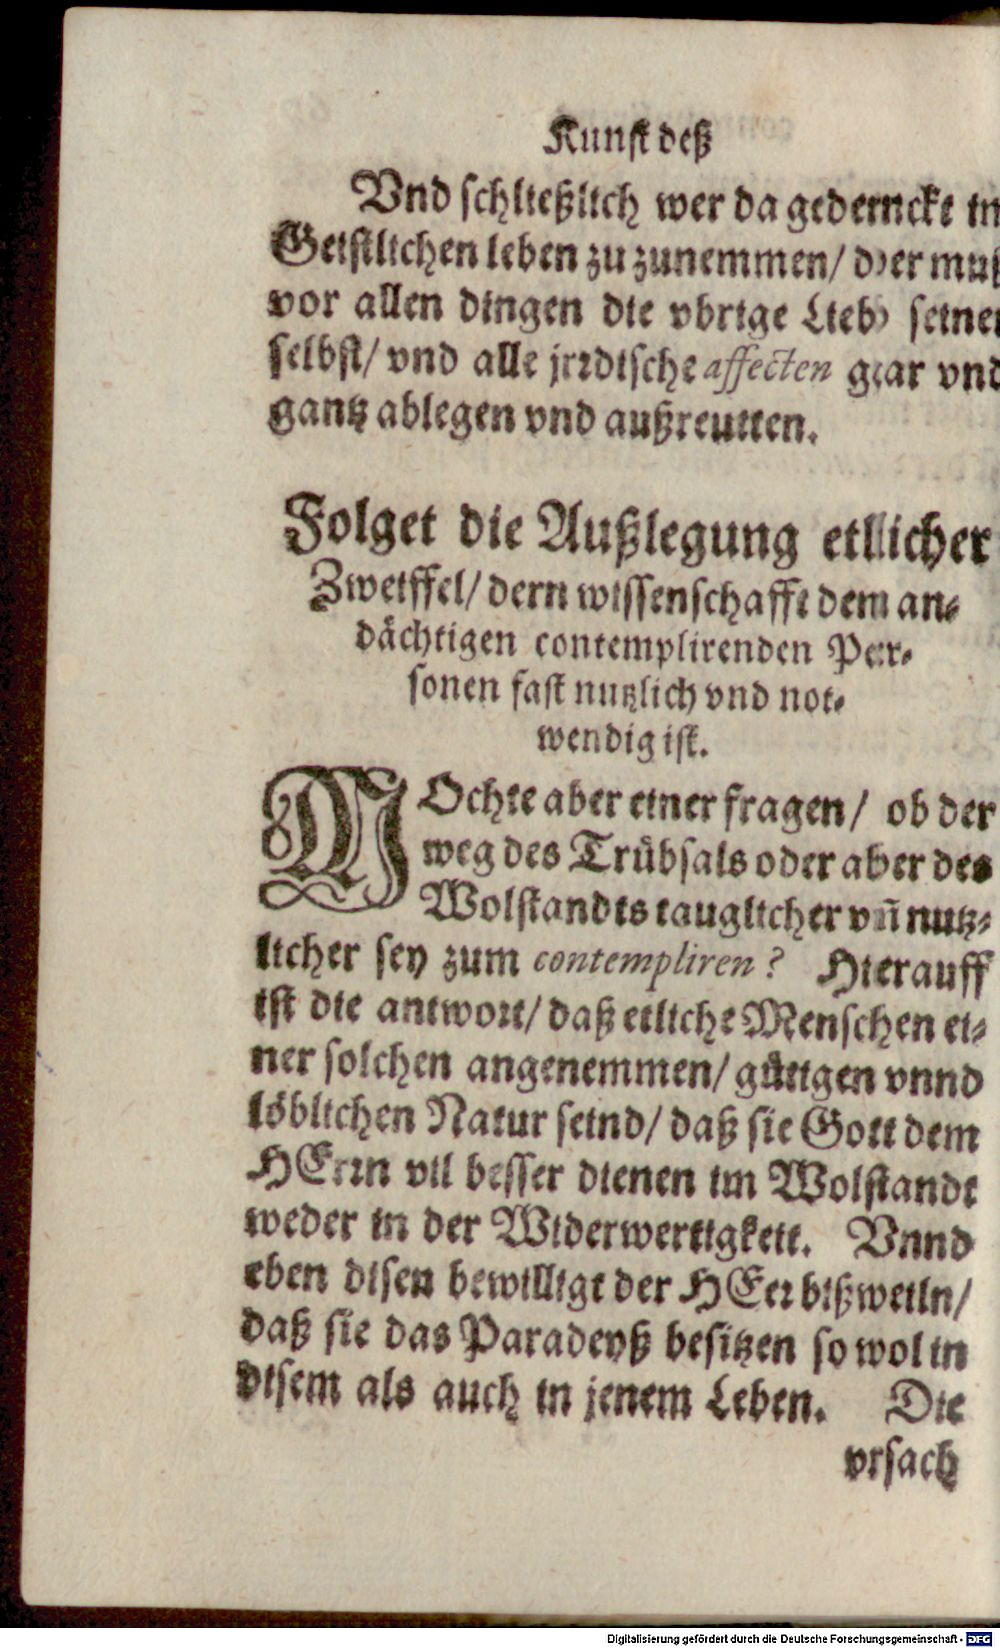 Kunst deß
Vnd schließlich wer da gedenckt in
Geistlichen leben zu zunemmen/ der muß
vor allen dingen die vbrige Lieb seiner
selbst/ vnd alle jrrdische affecten gar vnd
gantz ablegen vnd außreutten.
Folget die Außlegung etllicher
Zweiffel/ dern wissenschafft dem an-
dächtigen contemplirenden Per-
sonen fast nutzlich vnd not-
wendig ist.
MOchte aber einer fragen/ ob der
weg des Trübsals oder aber des
Wolstandts tauglicher vñ nutz-
licher sey zum contempliren? Hierauff
ist die antwort/ daß etliche Menschen ei-
ner solchen angenemmen/ güttgen vnnd
löblichen Natur seind/ daß sie Gott dem
HErrn vil besser dienen im Wolstandt
weder in der Widerwertigkeit. Vnnd
eben disen bewilligt der HErr bißweiln/
daß sie das Paradeyß besitzen so wol in
disem als auch in jenem Leben. Die
vrsach
Digitalisierung gefördert durch die Deutsche Forschungsgemeinschaft - DFG